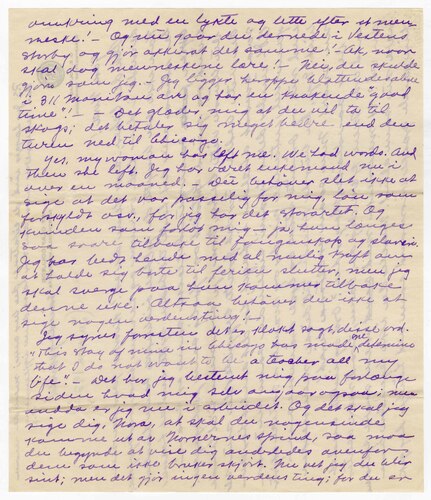 omkring med en lykte og lette efter et men-
neske! - Og nu gaar du dernede i Vestens
storby og gjør akkurat det samme! - Ak, naar
skal dog menneskene lære! - Nei, du skulde
gjøre som jeg. - Jeg ligger heroppe
i 311 Monitou ave og har en knakende "good
time"! - Det glæder mig at du vil ta til
skogs; det betaler sig meget bedre end den
turen ned til Chicago.
Yes, my woman has left me. We had words. And
then she left. Jeg har været enkemand nu i
over en maaned. - Du behøver slet ikke at
sige at det var passelig for mig, løn som
forskyldt osv., for jeg har det storartet. Og
kvinden som forlot mig - ja, hun længes
saa svare tilbake til fangenskap og slaveri.
Jeg har bedt hende med al mulig kraft om
at holde sig borte til ferien slutter, men jeg
skal sverge paa hun kommer tilbake
denne uke. Altsaa behøver du ikke at
sige nogen verdens ting!
Jeg synes forresten det er klokt sagt, disse ord:
"This stay of mine in Chicago has made me determine
that I do not want to be a teacher all my
life! - Det har jeg bestemt mig paa for længe
siden hvad mig selv angaar ogsaa; men
endda er jeg nu i arbeidet. Og det skal jeg
sige dig, Nora, at skal du nogensinde
komme ut av Nornernes spind, saa maa
du begynde at vise dig anderledes ovenfor
dem som ikke bruker skjørt. Nu vet jeg du blir
sint; men det gjør ingen verdens ting; for du er